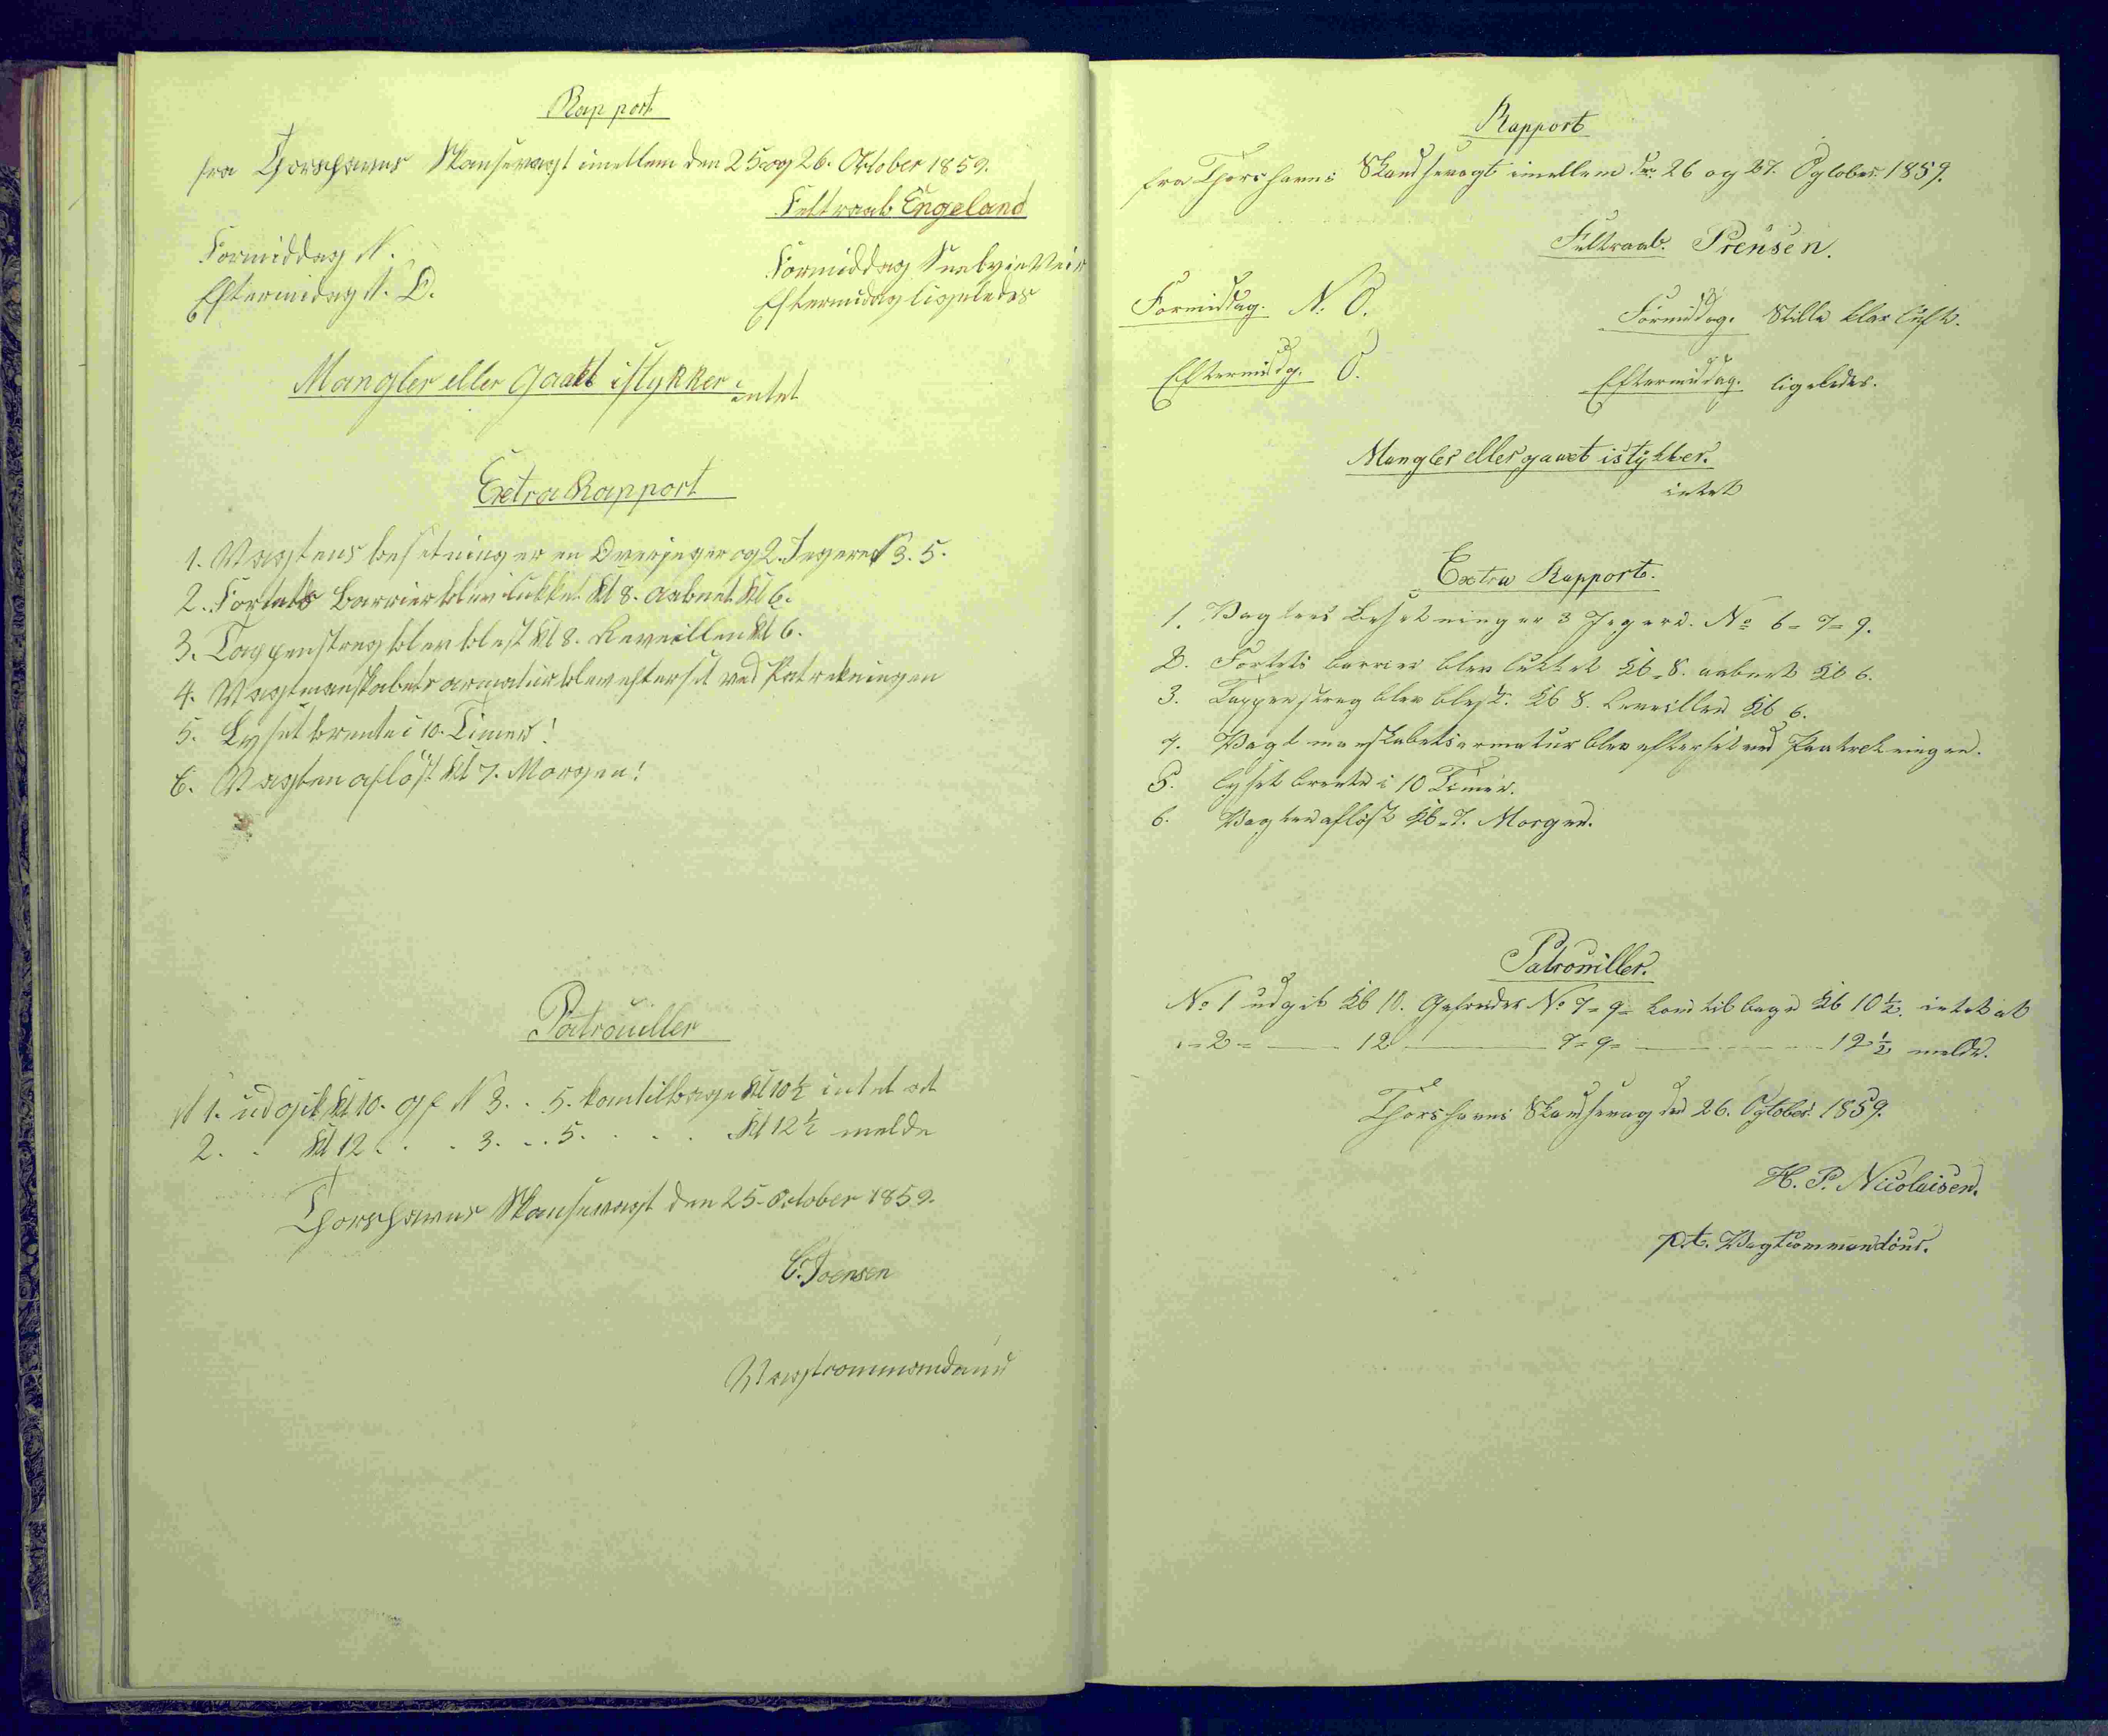 Rapport
fra Thorshavns Skansevagt imellem den 25 og 26. October 1859.
Feltraab Engeland
Formiddag N.
Eftermidag N. O.
Formiddag
Eftermidag ligeledes
Mangler eller gaaet istykker intet
Extra Rapport
1. Vagtens besetning er en Overjeger og 2. Jegere N 3. 5.
2. Fortets Barrier blev lukket Kl 8. aabnet Kl 6.
3. Tappenstreg blev blest Kl 8. Reveillen Kl 6.
4. Vagtmanskabets armatur blev efterset ved Patrekningen
5. Lyset brente i 10. Timer!
6. Vagten aflöst Kl 7. Morgen!
Patrouiller
N 1. udgik Kl 10. gf N 3. . 5. kom tilbage Kl 10½ intet at
2. . Kl 12 . . . 3. . . 5. . . . . Kl 12½ melde
Thorshavns Skansevagt den 25. October 1859.
C. Joensen
Vagtcommandeur
Rapport
fra Thorshavns Skandsevagt imellem den 26 og 27. Ogtober 1859.
Feltraab. Preusen.
Formiddag. N. O.
Eftermidag. O.
Formiddag. Stille klar luft.
Eftermiddag. ligeledes.
Mangler eller gaaet istykker.
intet
Extra Rapport.
1. Vagtens Besetning er 3 Jegere. No 6 = 7 = 9.
2. Fortets barrier blev lukket Kl. 8. aabnet Kl 6.
3. Tappenstreg blev blest. Kl 8. Reveillen Kl 6.
4. Vagt manskabets armatur blev efterset ved Paatrekningen.
5. lyset brente i 10 Timer.
6. Vagten aflöst Kl. 7. Morgen.
Patrouiller.
No 1 udgik Kl 10. Gefreider No 7 = 9 = kom tilbage Kl 10½. intet at
" = 2 = — 12 — 7 = 9 = — 12½ melde.
Thorshavns Skandsevag den 26. Ogtober 1859.
H. P. Nicolaisen.
p.t. Vagtcommandöur.